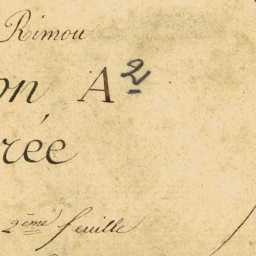 Rimou
on A2
rée
2ème feuille